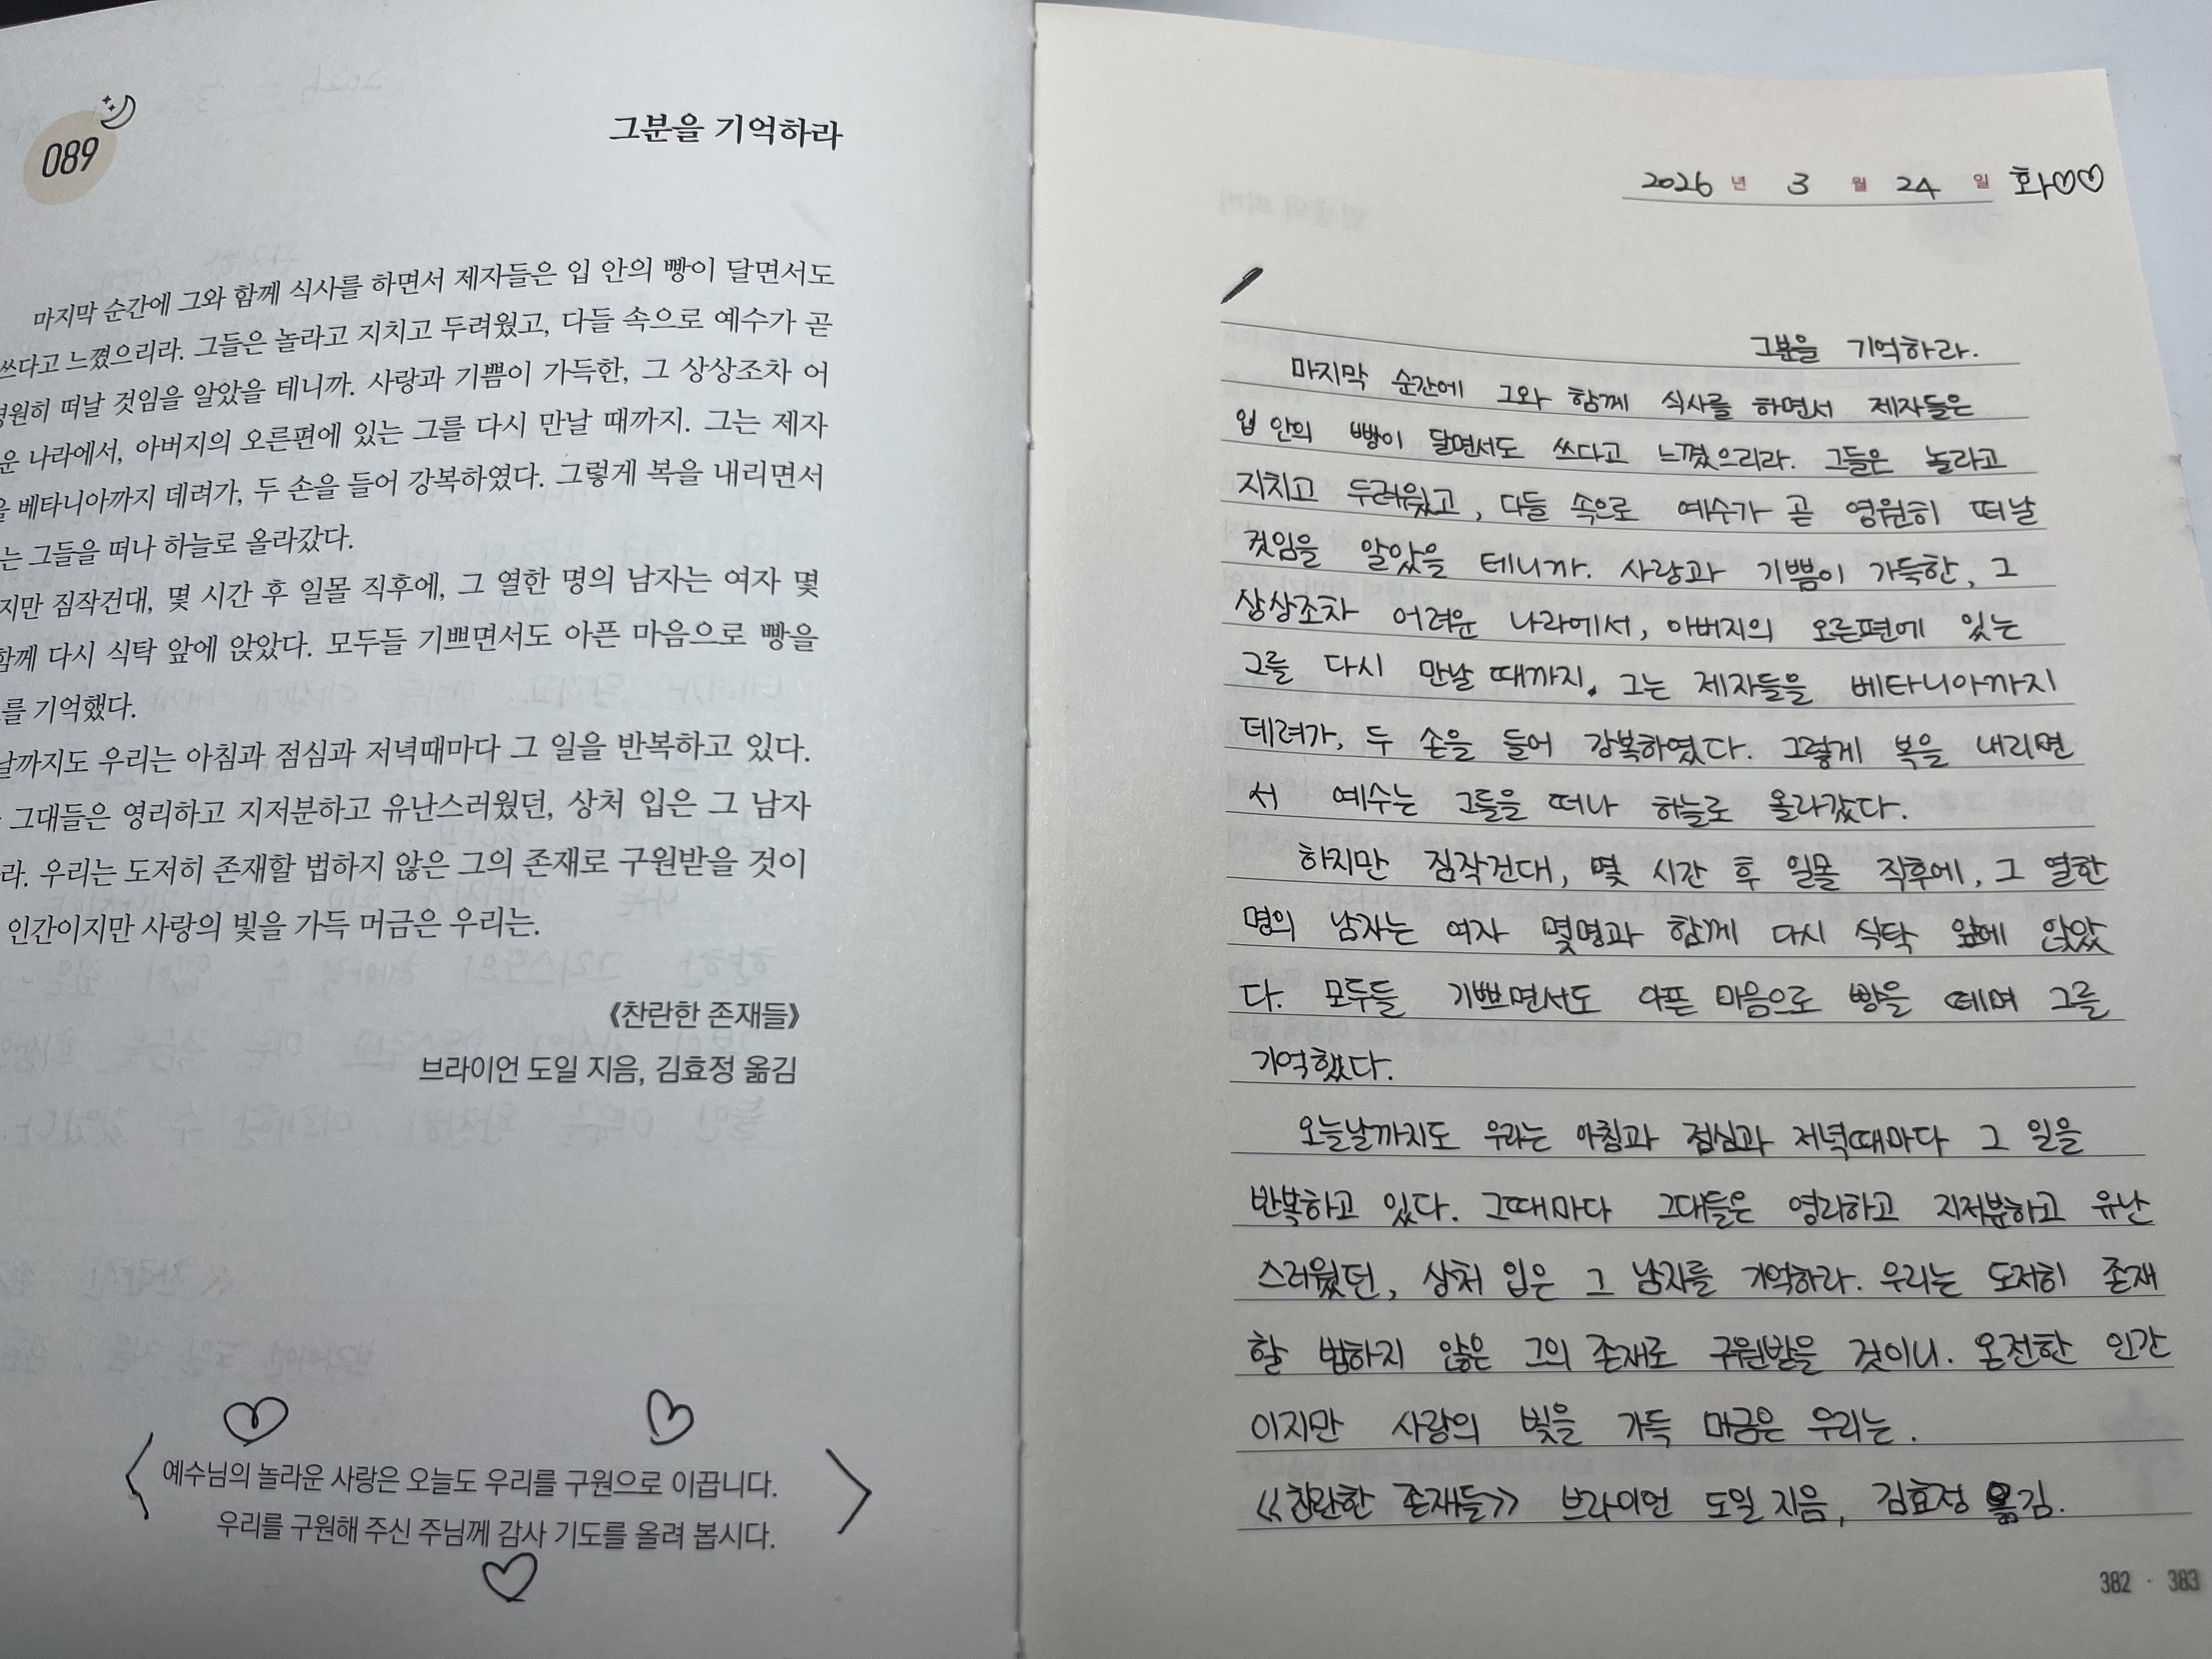 089
그분을 기억하라
마지막 순간에 그와 함께 식사를 하면서 제자들은 입 안의 빵이 달면서도
쓰다고 느꼈으리라. 그들은 놀라고 지치고 두려웠고, 다들 속으로 예수가 곧
영원히 떠날 것임을 알았을 테니까. 사랑과 기쁨이 가득한, 그 상상조차 어
운 나라에서, 아버지의 오른편에 있는 그를 다시 만날 때까지. 그는 제자
을 베타니아까지 데려가, 두 손을 들어 강복하였다. 그렇게 복을 내리면서
는 그들을 떠나 하늘로 올라갔다.
지만 짐작건대, 몇 시간 후 일몰 직후에, 그 열한 명의 남자는 여자 몇
함께 다시 식탁 앞에 앉았다. 모두들 기쁘면서도 아픈 마음으로 빵을
를 기억했다.
날까지도 우리는 아침과 점심과 저녁때마다 그 일을 반복하고 있다.
그대들은 영리하고 지저분하고 유난스러웠던, 상처 입은 그 남자
라. 우리는 도저히 존재할 법하지 않은 그의 존재로 구원받을 것이
인간이지만 사랑의 빛을 가득 머금은 우리는.
《찬란한 존재들》
브라이언 도일 지음, 김효정 옮김
예수님의 놀라운 사랑은 오늘도 우리를 구원으로 이끕니다.
우리를 구원해 주신 주님께 감사 기도를 올려 봅시다.
2026 년 3 월 24 일 화♡♡
그분을 기억하라.
마지막 순간에 그와 함께 식사를 하면서 제자들은
입 안의 빵이 달면서도 쓰다고 느꼈으리라. 그들은 놀라고
지치고 두려웠고, 다들 속으로 예수가 곧 영원히 떠날
것임을 알았을 테니까. 사랑과 기쁨이 가득한, 그
상상조차 어려운 나라에서, 아버지의 오른편에 있는
그를 다시 만날 때까지. 그는 제자들을 베타니아까지
데려가, 두 손을 들어 강복하였다. 그렇게 복을 내리면
서 예수는 그들을 떠나 하늘로 올라갔다.
하지만 짐작건대, 몇 시간 후 일몰 직후에, 그 열한
명의 남자는 여자 몇명과 함께 다시 식탁 앞에 앉았
다. 모두들 기쁘면서도 아픈 마음으로 빵을 떼며 그를
기억했다.
오늘날까지도 우리는 아침과 점심과 저녁때마다 그 일을
반복하고 있다. 그때마다 그대들은 영리하고 지저분하고 유난
스러웠던, 상처 입은 그 남자를 기억하라. 우리는 도저히 존재
할 법하지 않은 그의 존재로 구원받을 것이니. 온전한 인간
이지만 사랑의 빛을 가득 머금은 우리는.
《찬란한 존재들》 브라이언 도일 지음, 김효정 옮김.
382 · 383